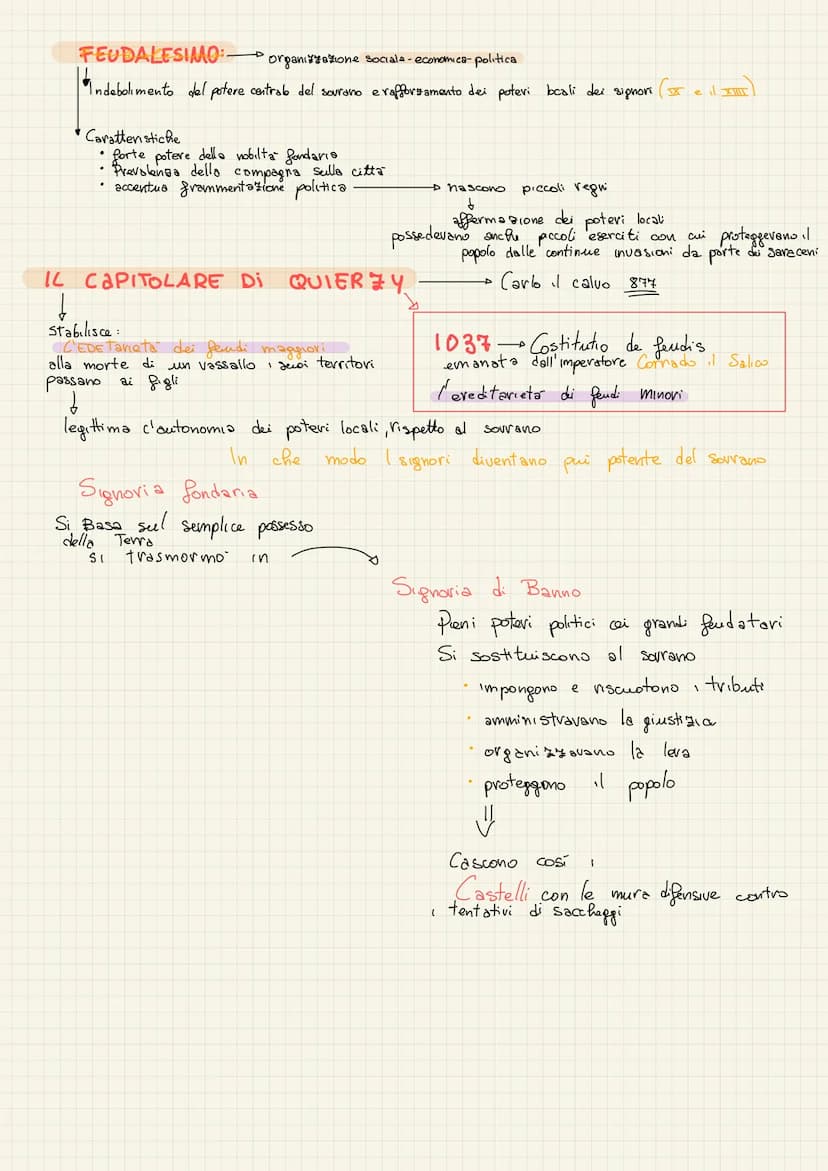 FEUDALESIMO: → organizzazione sociale-economica-politica
Indebolimento del potere centrale del sovrano e rafforzamento dei poteri locali dei signori (IX e il XIII)
Caratteristiche
• forte potere della nobiltà fondaria
• Prevalenza della compagna sulla città
• accentua frammentazione politica → nascono piccoli regni
affermazione dei poteri locali
possedevano anche piccoli eserciti con cui proteggevano il
popolo dalle continue invasioni da parte dei saraceni
IL CAPITOLARE Di QUIERZY → Carlo il calvo 877
stabilisce:
L'EDETarietà dei feudi maggiori
alla morte di un vassallo i suoi territori
passano ai figli
1037 → Costitutio de feudis
emanata dall'imperatore Corrado il Salico
l'ereditarietà di feudi minori
legittima l'autonomia dei poteri locali, rispetto al sovrano
In che modo I signori diventano più potente del sovrano
Signoria fondaria
Si Basa sul semplice possesso
della Terra
si trasmormo in
Signoria di Banno
Pieni poteri politici ai grandi feudatari
Si sostituiscono al sovrano
• impongono e riscuotono i tributi
• amministravano la giustizia
• organizzavano la leva
• proteggono il popolo
Cascono così i
Castelli con le mura difensive contro
i tentativi di saccheggi